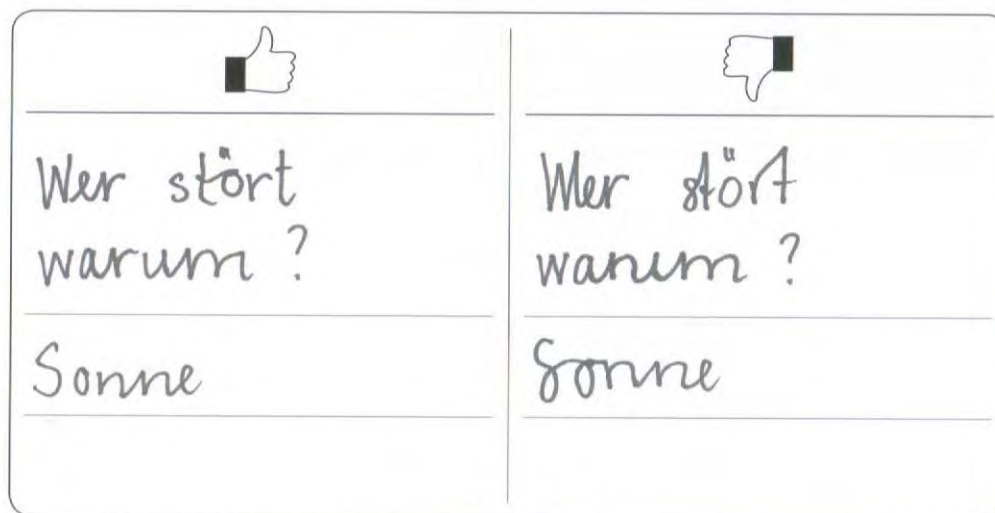 Wer stört
warum ?
Sonne
Wer stört
warum ?
Sonne